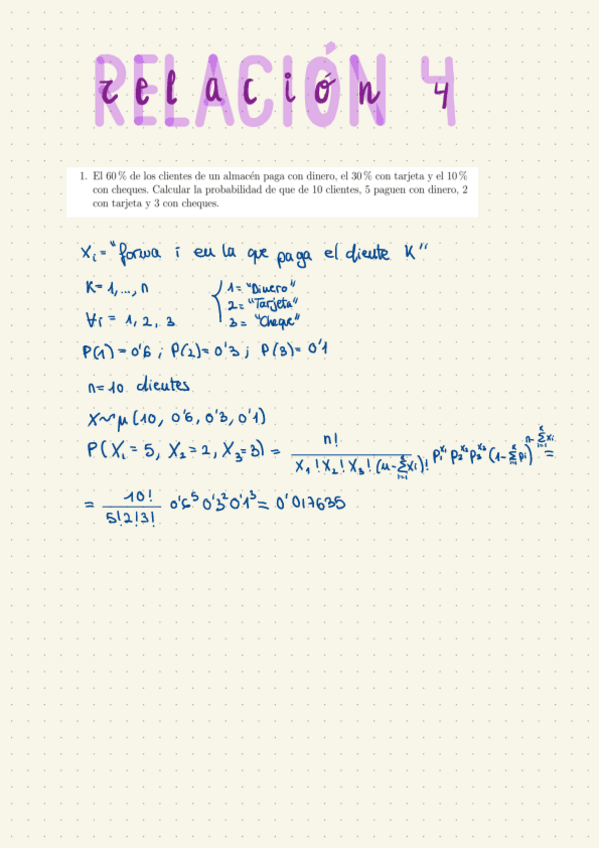 RELACIÓN 4
relación 4
1. El 60 % de los clientes de un almacén paga con dinero, el 30 % con tarjeta y el 10 %
con cheques. Calcular la probabilidad de que de 10 clientes, 5 paguen con dinero, 2
con tarjeta y 3 con cheques.
Xi = "forma i en la que paga el cliente K"
K = 1, ..., n { 1 = "Dinero"
2 = "Tarjeta"
∀i = 1, 2, 3 3 = "Cheque"
P(1) = 0'6 ; P(2) = 0'3 ; P(3) = 0'1
n = 10 clientes
X ~ μ (10, 0'6, 0'3, 0'1)
P(X₁ = 5, X₂ = 2, X₃ = 3) = n! / X₁! X₂! X₃! (n - Σxi)! P₁^x₁ P₂^x₂ P₃^x₃ (1 - Σpi)^(n - Σxi) =
= 10! / 5!2!3! 0'6⁵ 0'3² 0'1³ = 0'017635